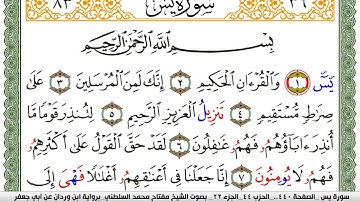 ٨٣ سُورَةُ يسٓ ٣٦
بِسْمِ اللَّهِ الرَّحْمَٰنِ الرَّحِيمِ
يسٓ ١ وَالْقُرْءَانِ الْحَكِيمِ ٢ إِنَّكَ لَمِنَ الْمُرْسَلِينَ ٣ عَلَىٰ
صِرَٰطٍ مُّسْتَقِيمٍ ٤ تَنزِيلُ الْعَزِيزِ الرَّحِيمِ ٥ لِتُنذِرَ قَوْمًا مَّا
أُنذِرَ ءَابَآؤُهُمُۥ فَهُمُۥ غَٰفِلُونَ ٦ لَقَدْ حَقَّ الْقَوْلُ عَلَىٰٓ أَكْثَرِهِمُۥ
فَهُمُۥ لَا يُومِنُونَ ٧ إِنَّا جَعَلْنَا فِىٓ أَعْنَٰقِهِمُۥٓ أَغْلَٰلًا فَهْىَ إِلَى
سورة يس ـ الصفحة ٤٤٠ ـ الحزب ٤٤ ـ الجزء ٢٢ ـ بصوت الشيخ مفتاح محمد السلطني ـ برواية ابن وردان عن أبي جعفر